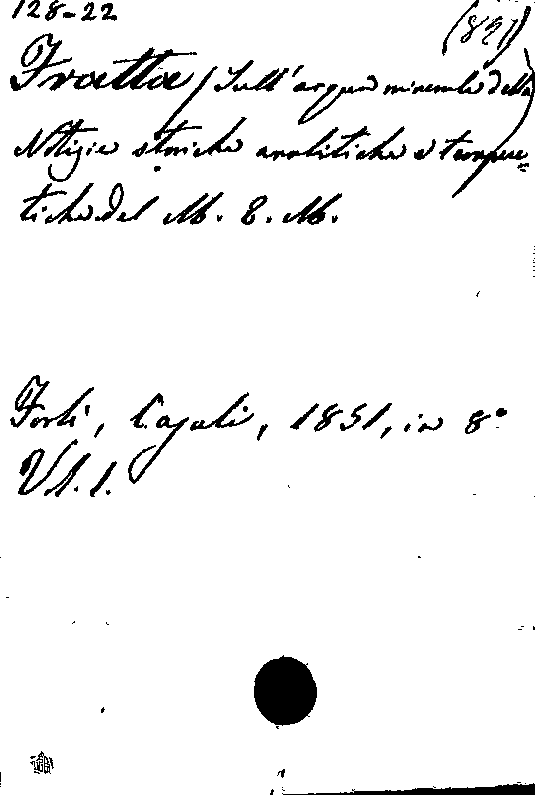 128-22
(851)
Fratta (Sull'acqua minerale della)
Notizie storiche analitiche e terapeu=
tiche del M. E. M.
Forlì, Casali, 1851, in 8°
V. 1. 1.